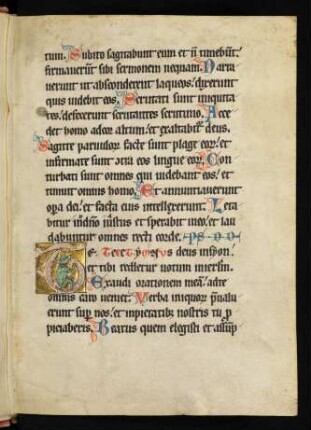 rum. Subito sagittabunt eum et n̄ timebūt.
firmauerūt sibi sermonem nequam. Narra
uerunt ut absconderent laqueos. dixerunt
quis uidebit eos. Scrutati sunt iniquita
tes. defecerunt scrutantes scrutinio. Acce
det homo ad cor altum. et exaltabitᷣ deus.
Sagitte paruulorᷓ facte sunt plage eorᷓ. et
infirmate sunt contra eos lingue eorᷓ. Con
turbati sunt omnes qui uidebant eos. et
timuit omnis homo. Et annuntiauerunt
opa dei. et facta eius intellexerunt. Leta
bitur iustus et sperabit in eo. et lau
dabuntur omnes recti corde.
Te decet ymnus deus in syon.
et tibi reddetur uotum in ierlm̄.
Exaudi orationem meā. ad te
omnis caro ueniet. Verba iniquorᷓ p̄ualu
erunt sup nos. et inpietatibᷤ nostris tu p
piciaberis. Beatus quem elegisti et assūp